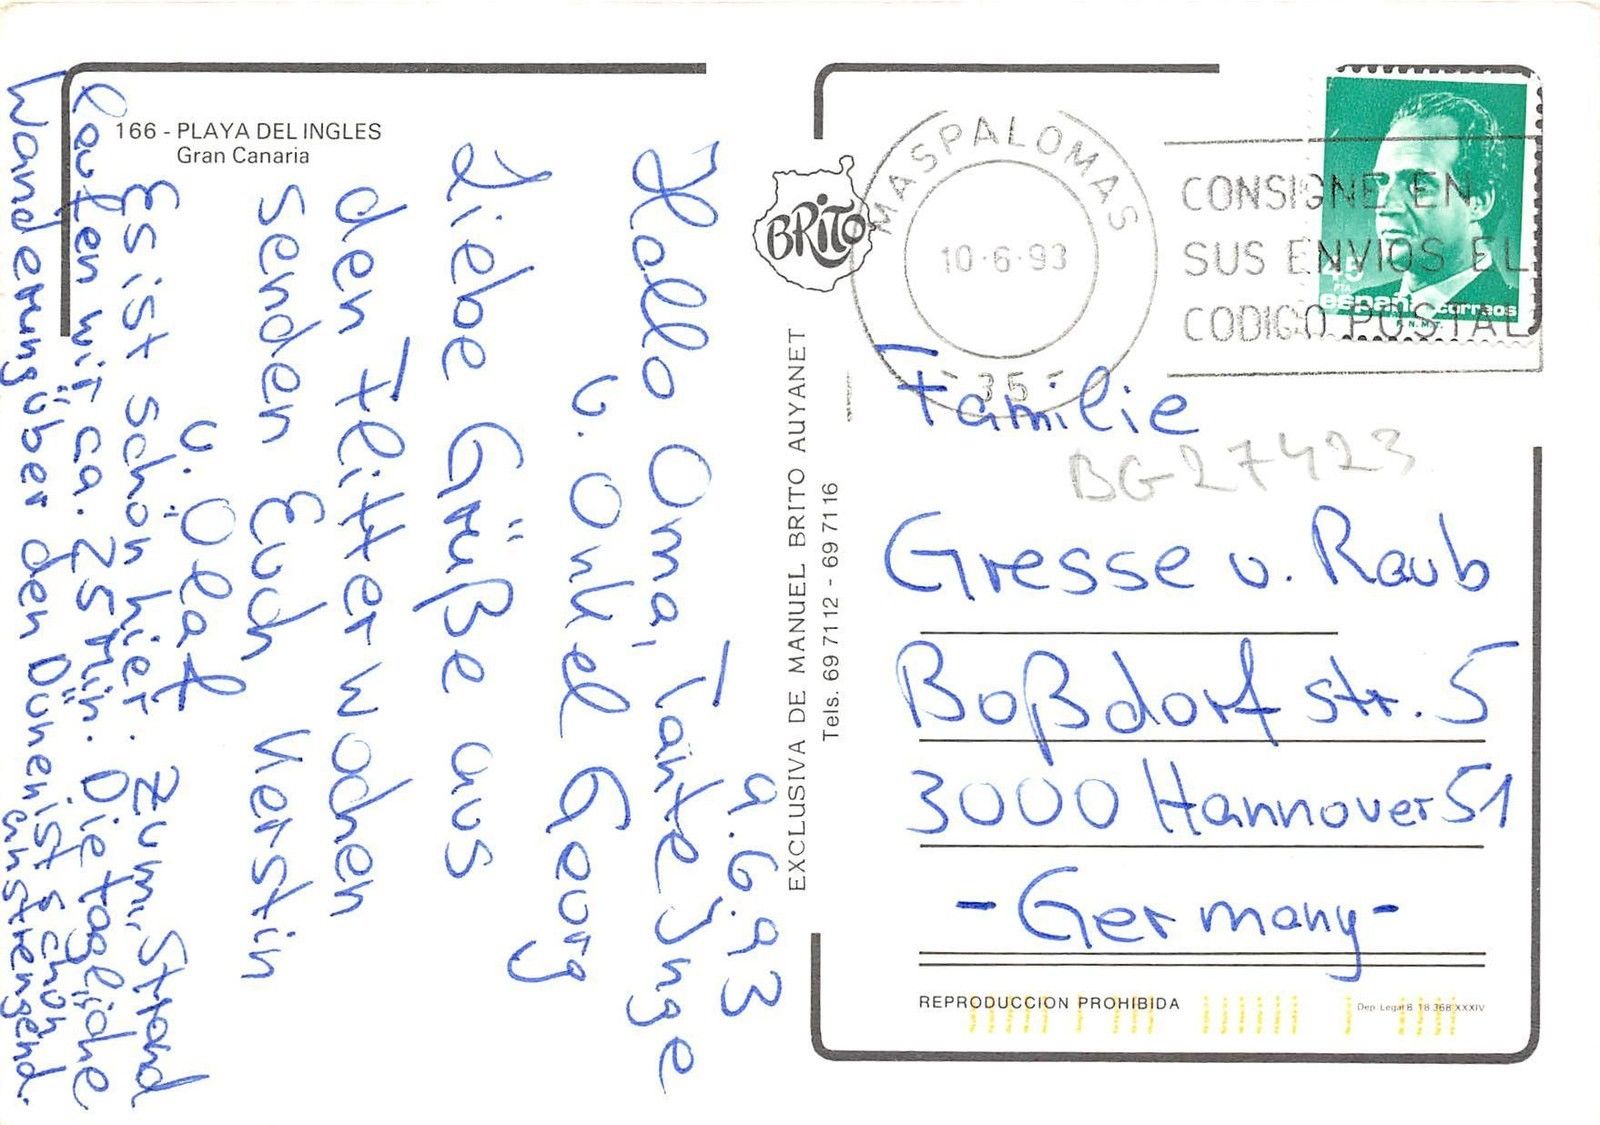 166 - PLAYA DEL INGLES
Gran Canaria
9.6.93
Hallo Oma, Tante Inge
u. Onkel Georg
Liebe Grüße aus
den Flitterwochen
senden Euch Kerstin
u. Olaf
Es ist schön hier. Zum Strand
laufen wir ca. 25 min. Die tagliche
Wanderung über den Dünen ist schon
anstrengend.
BRITO
EXCLUSIVA DE MANUEL BRITO AUYANET
Tels. 69 71 12 - 69 71 16
MASPALOMAS
10-6-93
-35-
CONSIGNE EN
SUS ENVIOS EL
CODIGO POSTAL
45
PTA
españa correos
F.N.M.T.
Familie
BG27423
Gresse u. Raub
Boßdorfstr. 5
3000 Hannover 51
- Germany -
REPRODUCCION PROHIBIDA
Dep. Legal B. 18.368-XXXIV